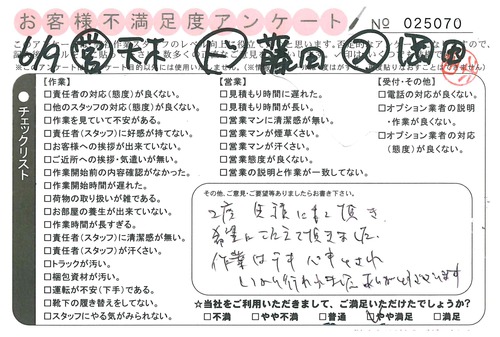 お客様不満足度アンケート
No 025070
6/9 営 下木 ビ 藤田
チェックリスト
【作業】
□責任者の対応(態度)が良くない。
□他のスタッフの対応(態度)が良くない。
□作業を見ていて不安がある。
□責任者(スタッフ)に好感が持てない。
□お客様への挨拶が出来ていない。
□ご近所への挨拶・気遣いが無い。
□作業開始前の内容確認がなかった。
□作業開始時間が遅れた。
□荷物の取り扱いが雑である。
□お部屋の養生が出来ていない。
□作業時間が長すぎる。
□責任者(スタッフ)に清潔感が無い。
□責任者(スタッフ)が汗くさい。
□トラックが汚い。
□梱包資材が汚い。
□運転が不安(下手)である。
□靴下の履き替えをしてない。
□スタッフにやる気がみられない。
【営業】
□見積もり時間に遅れた。
□見積もり時間が長い。
□営業マンに清潔感が無い。
□営業マンが煙草くさい。
□営業マンが汗くさい。
□営業態度が良くない。
□営業の説明と作業が一致してない。
【受付・その他】
□電話の対応が良くない。
□オプション業者の説明
・作業が良くない。
□オプション業者の対応
(態度)が良くない。
その他、ご意見・ご要望等ありましたらお書き下さい。
2度 見積に来て頂き
希望にこたえて頂きました。
作業は
ありがとうございます
☆当社をご利用いただきまして、ご満足いただけたでしょうか?
□不満 □やや不満 □普通 □やや満足 □満足